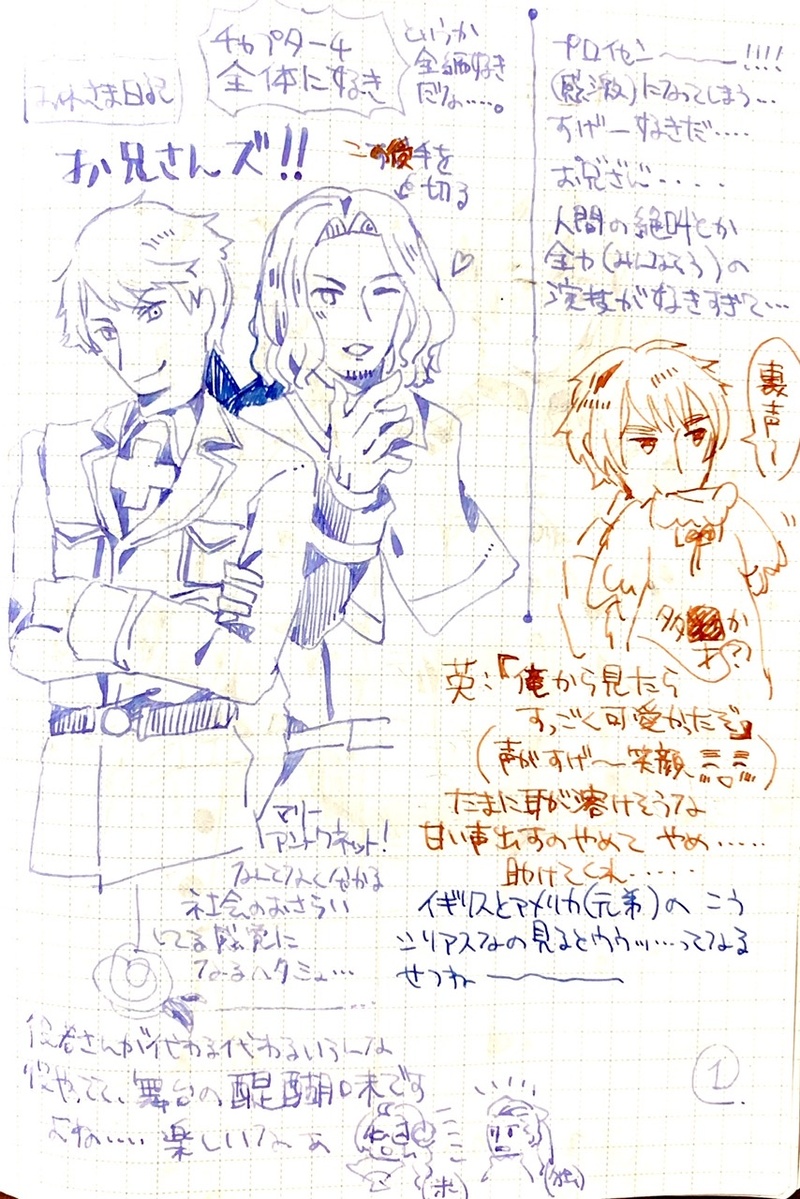 おれさま日記
チャプター4
全体に好き
というか
全編好き
だな……。
お兄さんズ!!
この後手を
切る
プロイセン────!!!!
(感激)になってしまう…
すげー好きだ……
お兄さん……
人間の絶叫とか
全力(みんなそう)の
演技が好きすぎて…
裏声〜
英:『俺から見たら
すっごく可愛かったぞ』
(声がすげ〜笑顔、
たまに耳が溶けそうな
甘い声出すのやめて やめ……
助けてくれ……
イギリスとアメリカ(元弟)の こう
シリアスなの見るとウウッ…ってなる
せつね────
マリー
アントワネット!
なんてなく分かる
社会のおさらい
してる感覚に
なるヘタミュ…
役者さんが代わる代わるいろんな
役やってて、舞台の醍醐味です
よね…… 楽しいなぁ
(米)
1